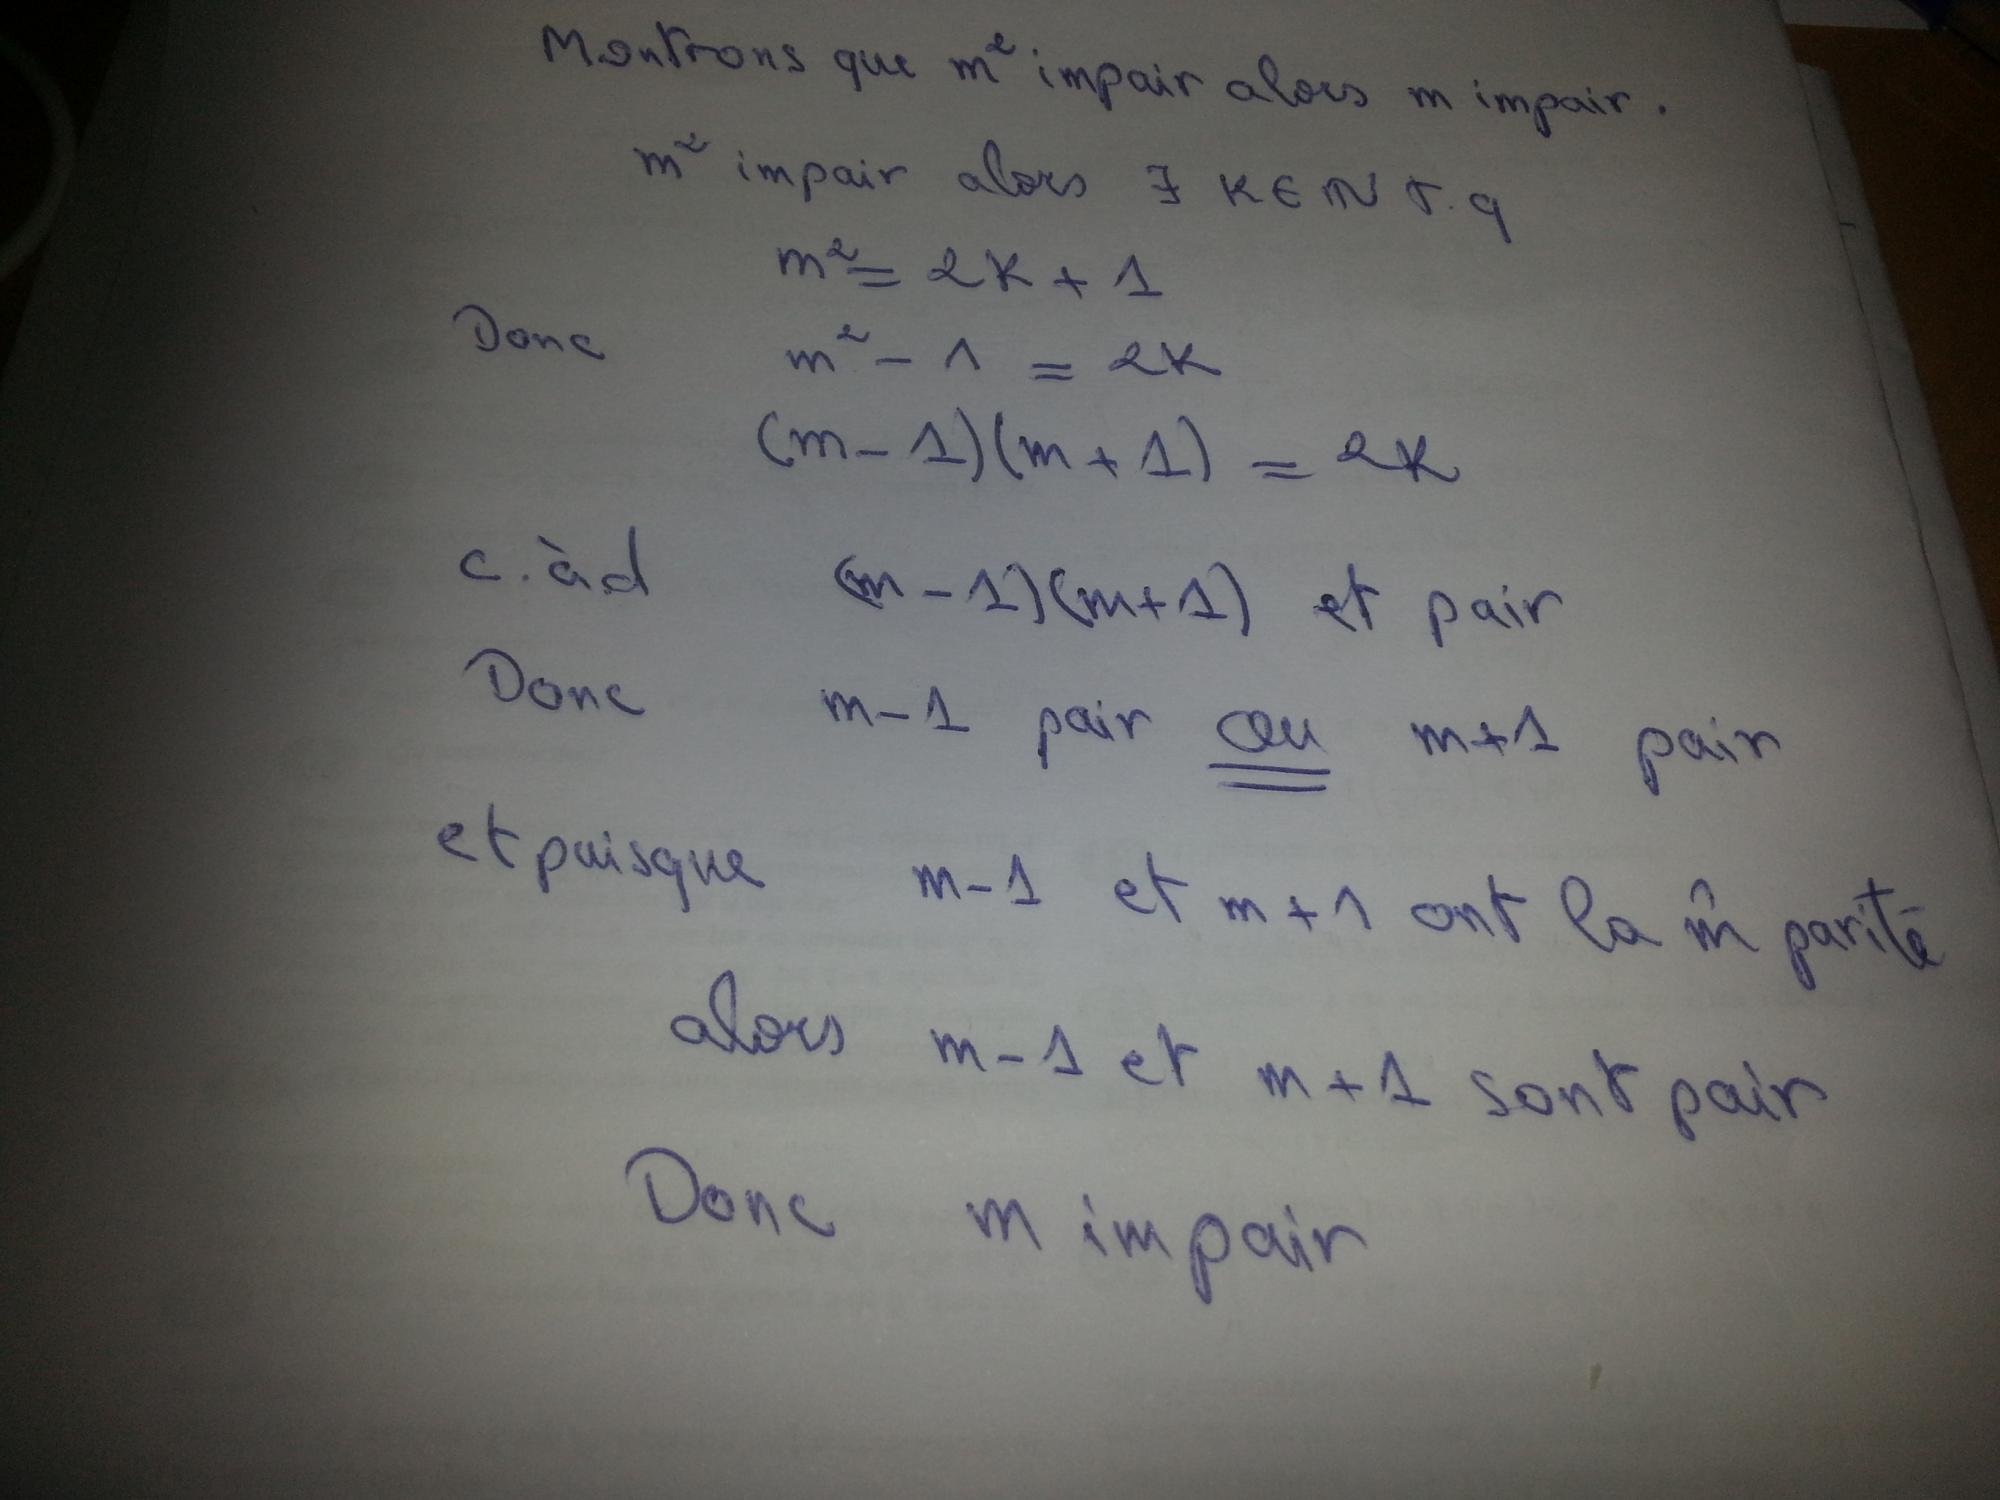 Montrons que m² impair alors m impair.
m² impair alors ∃ K∈ℕ t.q
m² = 2K + 1
Donc m² - 1 = 2K
(m - 1)(m + 1) = 2K
c.àd (m - 1)(m+1) et pair
Donc m-1 pair ou m+1 pair
et puisque m-1 et m+1 ont la m̂ parité
alors m-1 et m+1 sont pair
Donc m impair